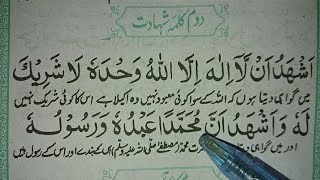 دوم کلمہ شہادت
اَشْهَدُ اَنْ لَّآ اِلٰهَ اِلَّا اللّٰهُ وَحْدَهٗ لَا شَرِيْكَ
میں گواہی دیتا ہوں کہ اللہ کے سوا کوئی معبود نہیں وہ اکیلا ہے اس کا کوئی شریک نہیں
لَهٗ وَاَشْهَدُ اَنَّ مُحَمَّدًا عَبْدُهٗ وَرَسُوْلُهٗ
اور میں گواہی محمد مصطفٰے صلی اللہ علیہ وسلم اس کے بندے اور اس کے رسول ہیں